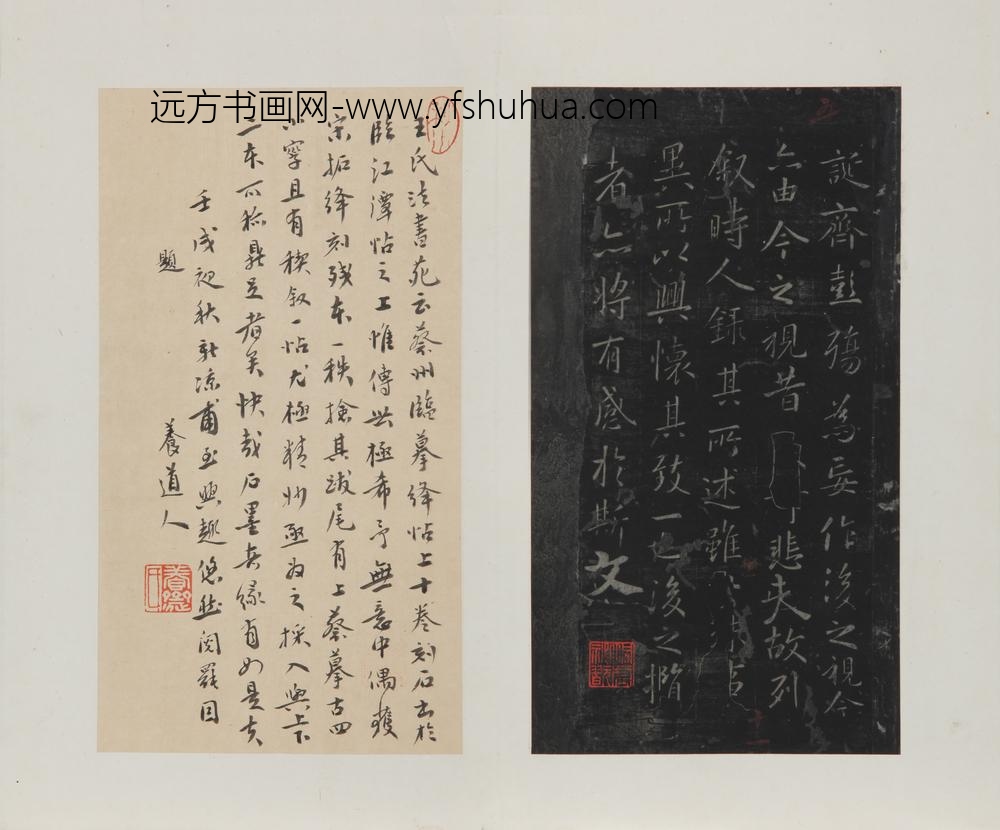 远方书画网-www.yfshuhua.com
誕齊彭殤為妄作後之視今
亦由今之視昔悲夫故列
叙時人錄其所述雖
異所以興懷其致一也後之攬
者亦將有感於斯文
王氏法書苑云蔡州臨摹绛帖上十卷刻石出於
临江潭帖之上惟傳世極希予無意中偶獲
宋拓绛刻殘本一秩撿其跋尾有上蔡摹古四
小字且有稧叙一帖尤極精妙亟为之採入與卞
二本可称鼎足者矣快哉石墨奇缘有如是夫
壬戌初秋新凉甫至興趣悠然閱罷因
題
養道人